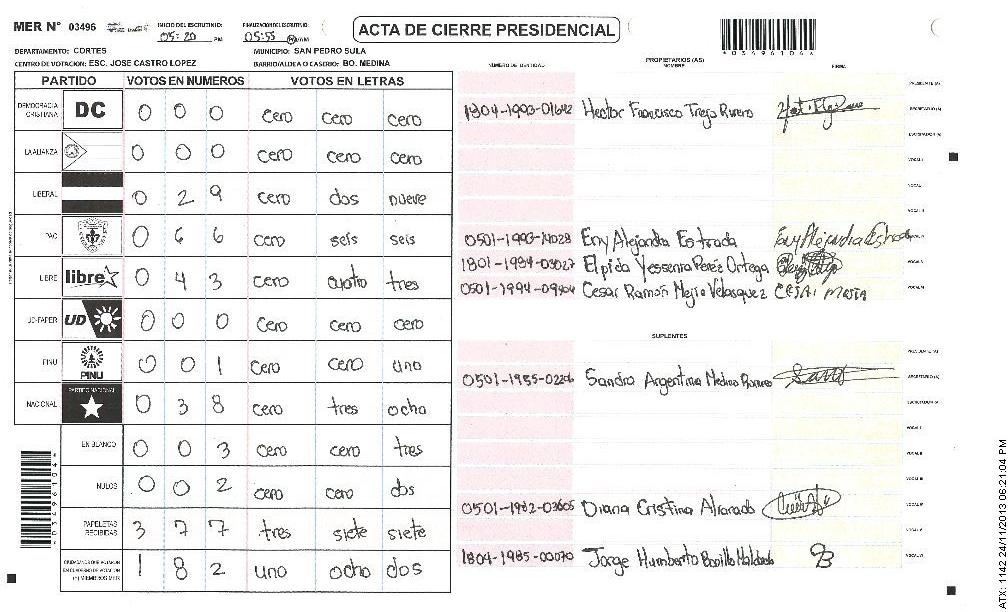 MER N° 03496 INICIO DEL ESCRUTINIO: 05:20 PM FINALIZACION DEL ESCRUTINIO: 05:55 PM/AM ACTA DE CIERRE PRESIDENCIAL
DEPARTAMENTO: CORTES MUNICIPIO: SAN PEDRO SULA
CENTRO DE VOTACION: ESC. JOSE CASTRO LOPEZ BARRIO/ALDEA O CASERIO: BO. MEDINA
PARTIDO VOTOS EN NUMEROS VOTOS EN LETRAS
DEMOCRACIA CRISTIANA DC 0 0 0 cero cero cero
LA ALIANZA 0 0 0 cero cero cero
LIBERAL 0 2 9 cero dos nueve
PAC 0 6 6 cero seis seis
LIBRE libre 0 4 3 cero cuatro tres
UD-FAPER UD 0 0 0 cero cero cero
PINU PINU 0 0 1 cero cero uno
NACIONAL PARTIDO NACIONAL 0 3 8 cero tres ocho
EN BLANCO 0 0 3 cero cero tres
NULOS 0 0 2 cero cero dos
PAPELETAS RECIBIDAS 3 7 7 tres siete siete
CIUDADANOS QUE VOTARON EN CUADERNO DE VOTACION (+) MIEMBROS MER 1 8 2 uno ocho dos
NUMERO DE IDENTIDAD PROPIETARIOS (AS) NOMBRE FIRMA
PRESIDENTE (A)
1804-1993-01642 Hector Francisco Trejo Rivero SECRETARIO (A)
ESCRUTADOR (A)
VOCAL I
0501-1993-14028 Eny Alejandra Estrada Eny Alejandra Estrada
1801-1984-03027 Elpida Yessenia Perez Ortega
0501-1994-09404 Cesar Ramón Mejia Velasquez CESAR MEJIA
SUPLENTES
PRESIDENTE (A)
Sandra Argentina Medina Romero SECRETARIO (A)
ESCRUTADOR (A)
VOCAL I
0501-1982-03605 Diana Cristina Alvarado
1804-1985-00070 Jorge Humberto Bonilla Maldonado
4034961044
ATX: 1142 24/11/2013 06:21:04 PM